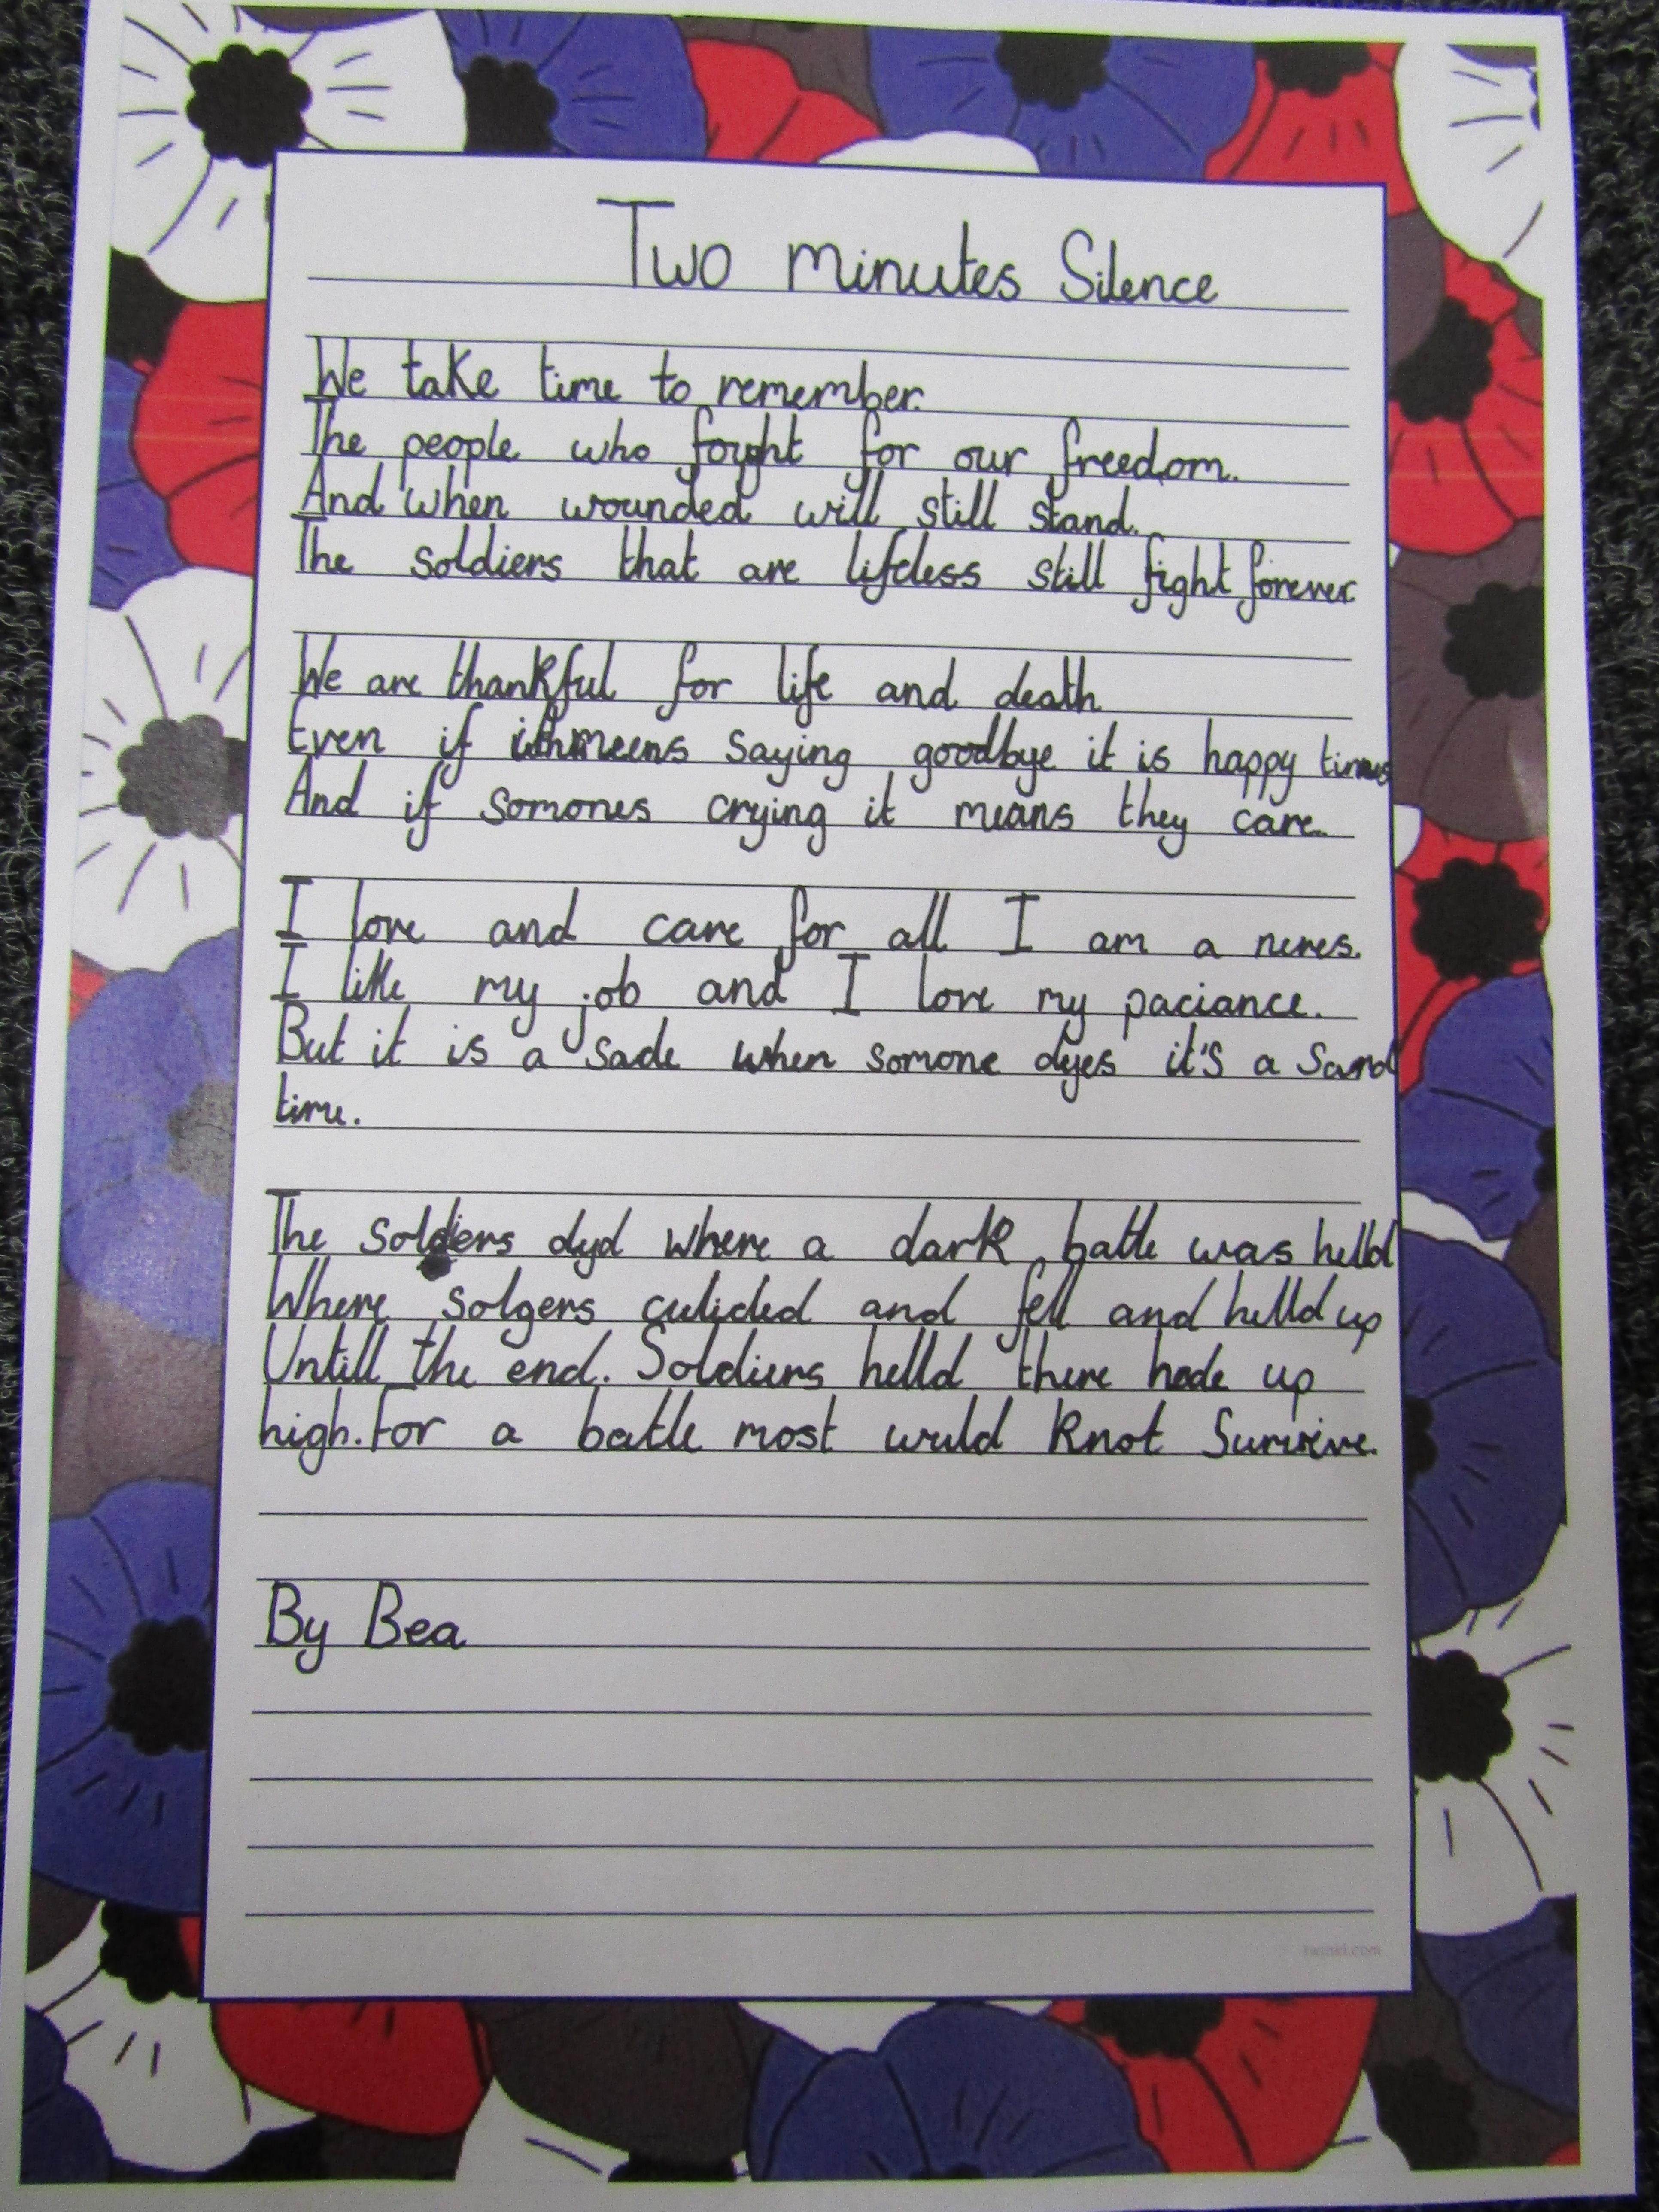 Two minutes Silence
We take time to remember.
The people who fought for our freedom.
And when wounded will still stand.
The soldiers that are lifeless still fight forever.
We are thankful for life and death
Even if meens saying goodbye it is happy times
And if somones crying it means they care.
I love and care for all I am a neres.
I like my job and I love my paciance.
But it is a sade when somone dyes it's a
time.
The soldiers dyd where a dark batle was helld
Where solgers culided and fell and helld up
Untill the end. Soldiers helld there hede up
high. For a batle most wuld knot Survive.
By Bea
twinkl.com